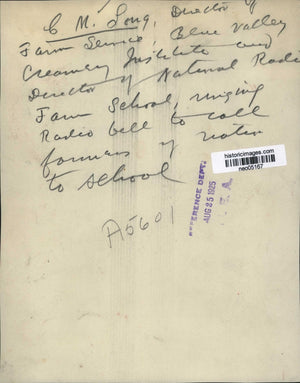 C M. Long, Director of
Farm Service; Blue Valley
Creamery Institute and
Director of National Radio
Farm School, ringing
Radio bell to call
farmers of nation
to school
historicimages.com
neo05167
REFERENCE DEPT.
AUG 25 1925
A5601